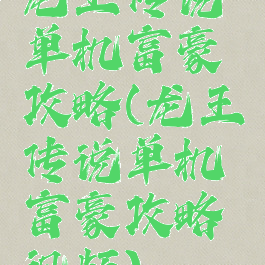 龙王传说
单机富豪
攻略(龙王
传说单机
富豪攻略
视频)